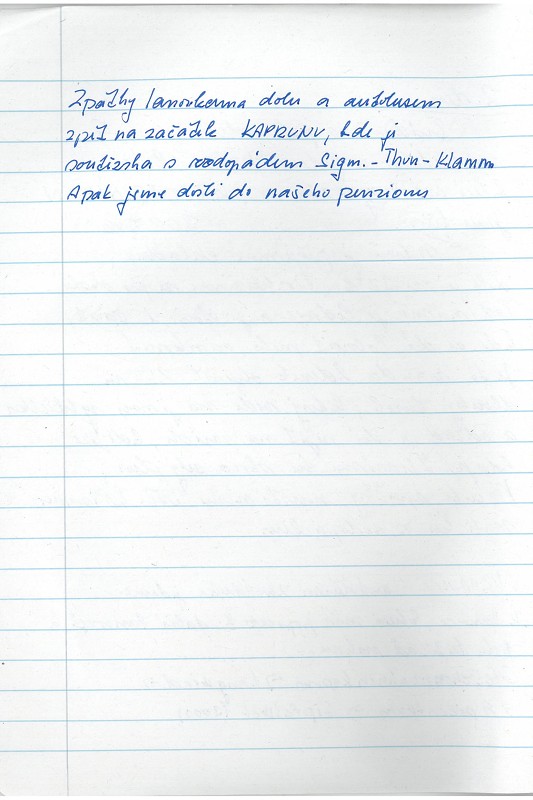 Zpátky lanovkama dolu a autobusem
zpět na začátek KAPRUNU, kde je
soutěska s vodopádem Sigm.-Thun-Klamm
A pak jsme došli do našeho penzionu